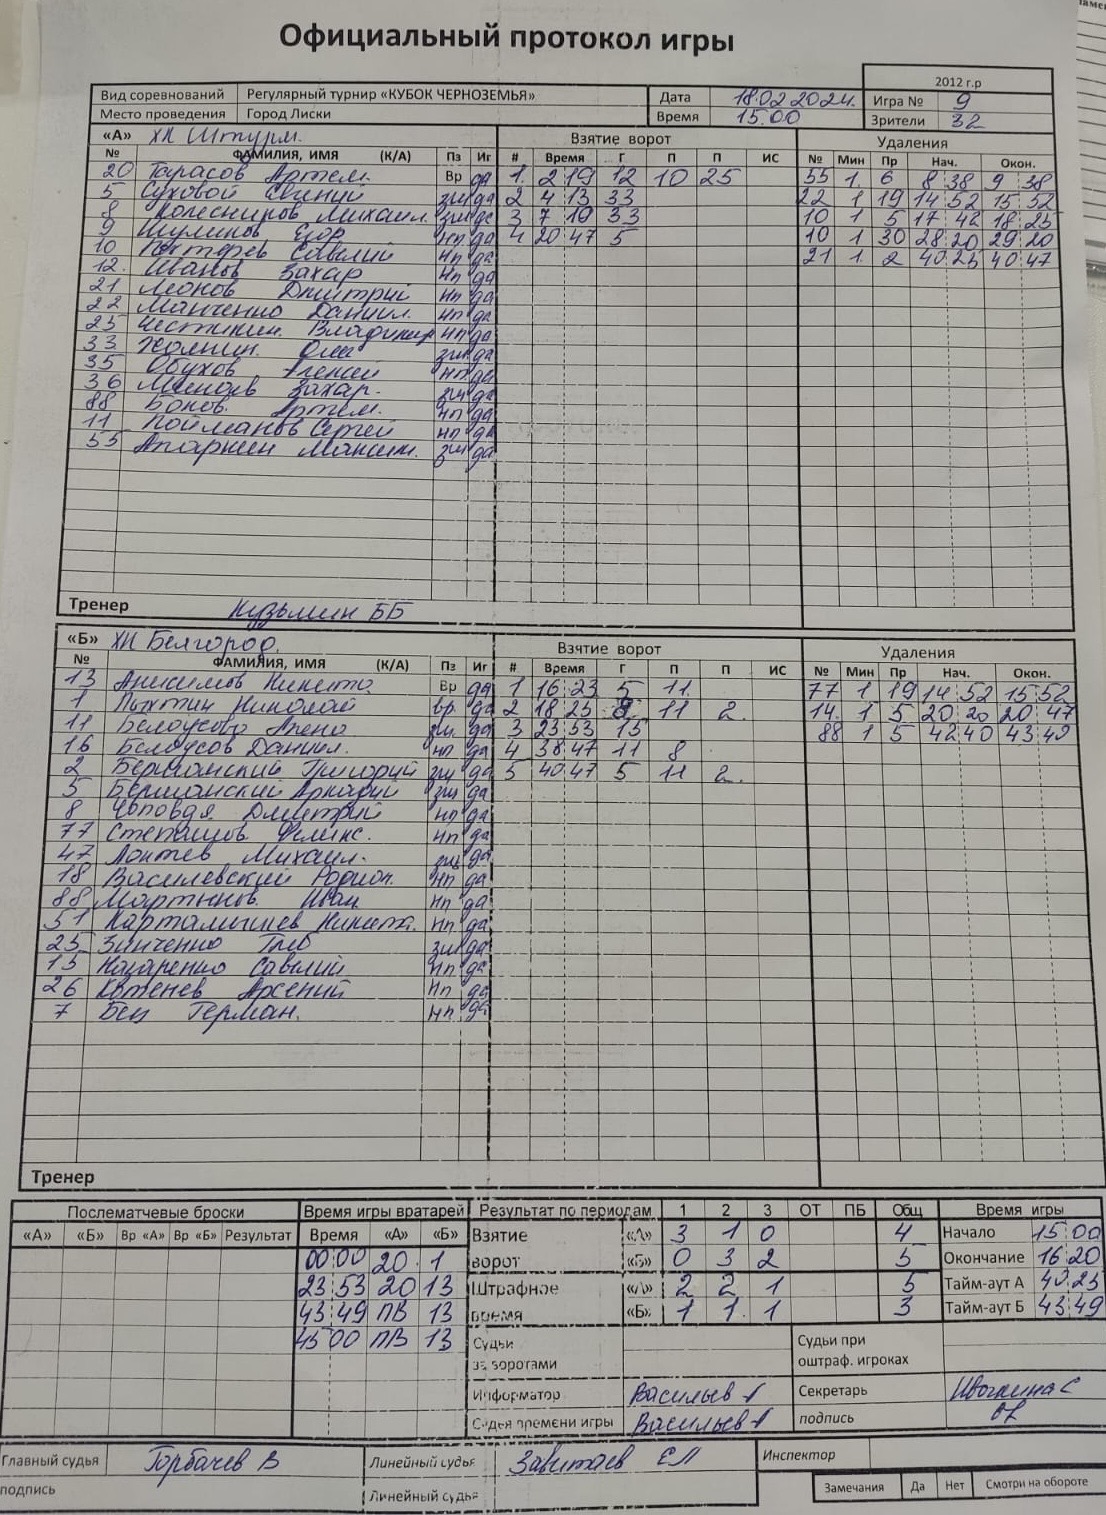 Официальный протокол игры
2012 г.р
Вид соревнований Регулярный турнир «КУБОК ЧЕРНОЗЕМЬЯ» Дата 18.02 2024. Игра № 9
Место проведения Город Лиски Время 15.00 Зрители 32
«А» ХК Штурм. Взятие ворот Удаления
№ ФАМИЛИЯ, ИМЯ (К/А) Пз Иг # Время Г П П ИС № Мин Пр Нач. Окон.
20 Тарасов Артем. Вр да 1. 2 19 12 10 25 55 1. 6 8 38 9 38
5 Суховой Евгений зщ да 2 4 13 33 22 1 19 14 52 15 52
8 Колесников Михаил. зщ да 3 7 19 33 10 1 5 17 42 18 25
9 Шулинов Егор нп да 4 20 47 5 10 1 30 28 20 29 20
10 Савелий нп да 21 1. 2 40 25 40 47
12. Иванов Захар нп да
21 Леонов Дмитрий нп да
22 Манченко Даниил. нп да
25 Владимир нп да
33 зщ да
35 Обухов нп да
36 Захар. зщ да
88 Бонов. Артем. нп да
11 Пойманов Сергей нп да
55 Максим. зщ да
Тренер Кузьмин ББ
«Б» ХК Белгород. Взятие ворот Удаления
№ ФАМИЛИЯ, ИМЯ (К/А) Пз Иг # Время Г П П ИС № Мин Пр Нач. Окон.
13 Анисимов Никита. Вр да 1 16 23 5 11. 77 1 19 14 52 15 52
1 Николай вр да 2 18 25 8 11 2. 14. 1 5 20 20 20 47
11 Белоусова зщ. да 3 23 53 15 88 1 5 42 40 43 40
16 Белоусов Даниил. нп да 4 38 47 11 8
2 Бершанский Григорий зщ да 5 40 47 5 11 2.
5 Бершанский Аркадий зщ да
8 Чоповдя Дмитрий нп да
77 Степанцов Феликс. нп да
47 Локтев Михаил. зщ да
18 Василевский Родион. нп да
88 Мартынов. Иван нп да
51 Картамышев Никита. нп да
25 Зинченко Глеб зщ да
15 Назаренко Савелий нп да
26 Котенев Арсений нп да
7 Бец Герман. нп да
Тренер
Послематчевые броски Время игры вратарей Результат по периодам 1 2 3 ОТ ПБ Общ Время игры
«А» «Б» Вр «А» Вр «Б» Результат Время «А» «Б» Взятие «А» 3 1 0 4 Начало 15 00
00 00 20 1 ворот «Б» 0 3 2 5 Окончание 16 20
23 53 20 13 Штрафное «А» 2 2 1 5 Тайм-аут А 40.25
43 49 ПВ 13 время «Б» 1 1. 1 3 Тайм-аут Б 43 49
45 00 ПВ 13 Судьи за воротами Судьи при оштраф. игроках
Информатор Васильев Секретарь
Судья времени игры Васильев подпись
Главный судья Горбачев В Линейный судья ЕП Инспектор
подпись Линейный судья Замечания Да Нет Смотри на обороте